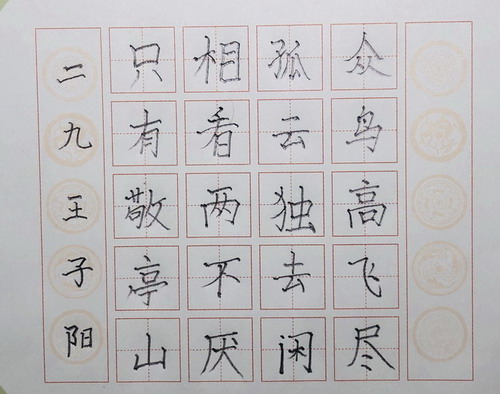 众鸟高飞尽
孤云独去闲
相看两不厌
只有敬亭山
二九王子阳